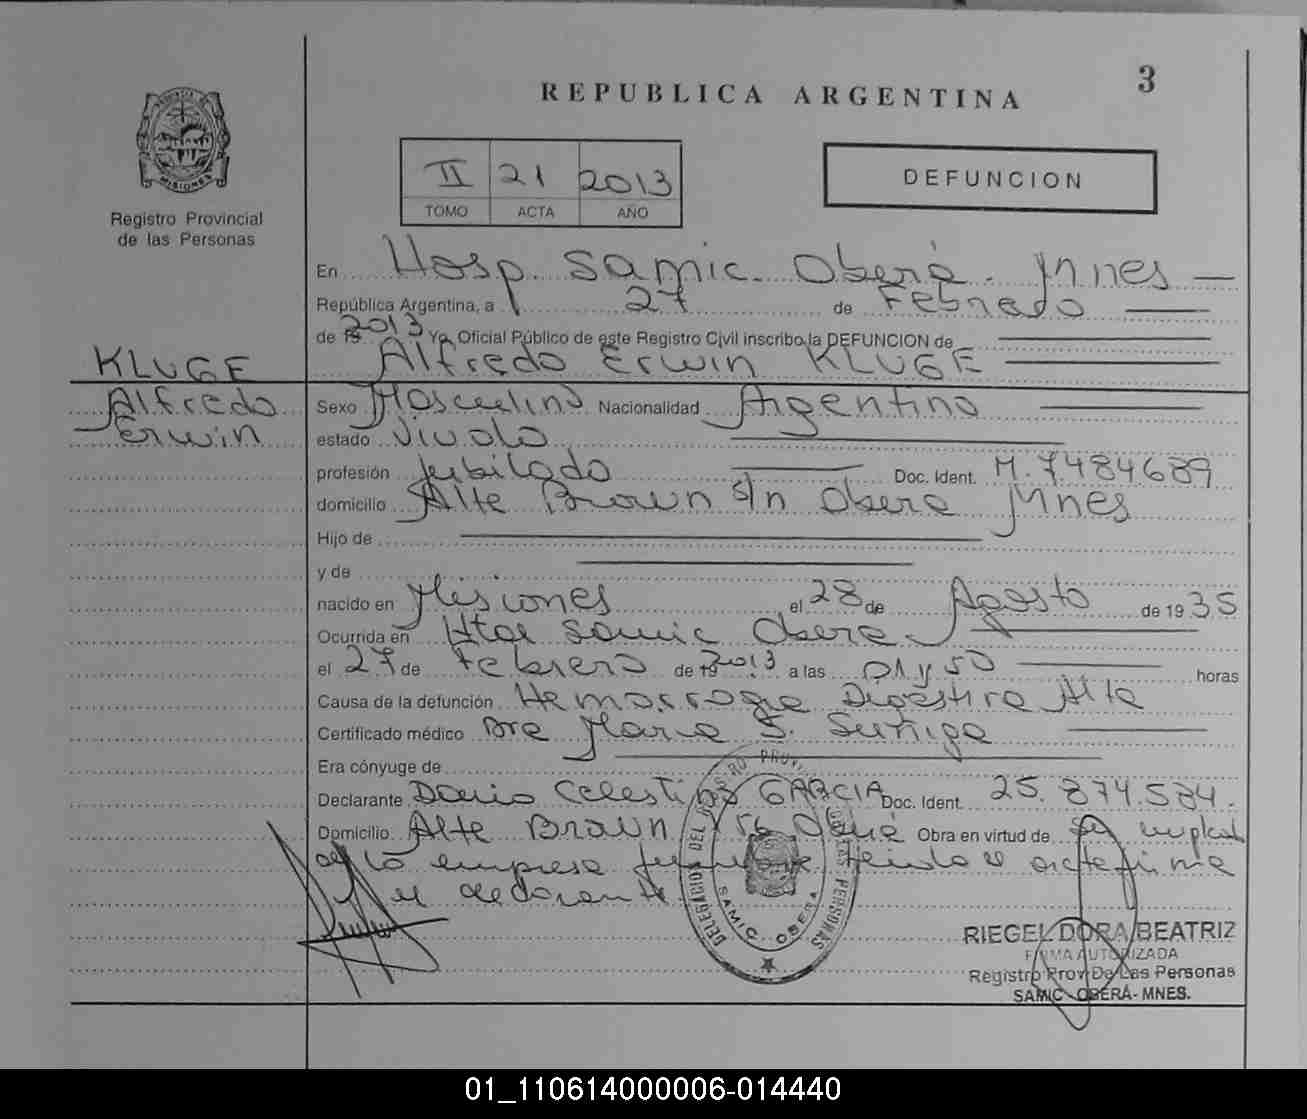 3
REPUBLICA ARGENTINA
MISIONES
Registro Provincial
de las Personas
II 21 2013
TOMO ACTA AÑO
DEFUNCION
En Hosp. Samic. Oberá. Mnes
República Argentina, a 27 de Febrero
de 19 2013 Yo, Oficial Público de este Registro Civil inscribo la DEFUNCION de
Alfredo Erwin KLUGE
KLUGE
Alfredo
Erwin
Sexo Masculino Nacionalidad Argentino
estado Viudo
profesión Jubilado Doc. Ident. M. 7484689
domicilio Alte Brown s/n Obera Mnes
Hijo de
y de
nacido en Misiones el 28 de Agosto de 19 35
Ocurrida en Htal Samic Obera
el 27 de Febrero de 19 2013 a las 01 y 50 horas
Causa de la defunción Hemorragia Digestiva Alta
Certificado médico Dra Maria S. Suñiga
Era cónyuge de
Declarante Dario Celestino GARCIA Doc. Ident. 25.874.584.
Domicilio Alte Brown Oberá Obra en virtud de
de la empresa leida el acta firma
el declarante
DELEGACION DEL REGISTRO PROV. DE LAS PERSONAS
SAMIC OBERA
RIEGEL DORA BEATRIZ
FIRMA AUTORIZADA
Registro Prov. De Las Personas
SAMIC - OBERÁ - MNES.
01_110614000006-014440